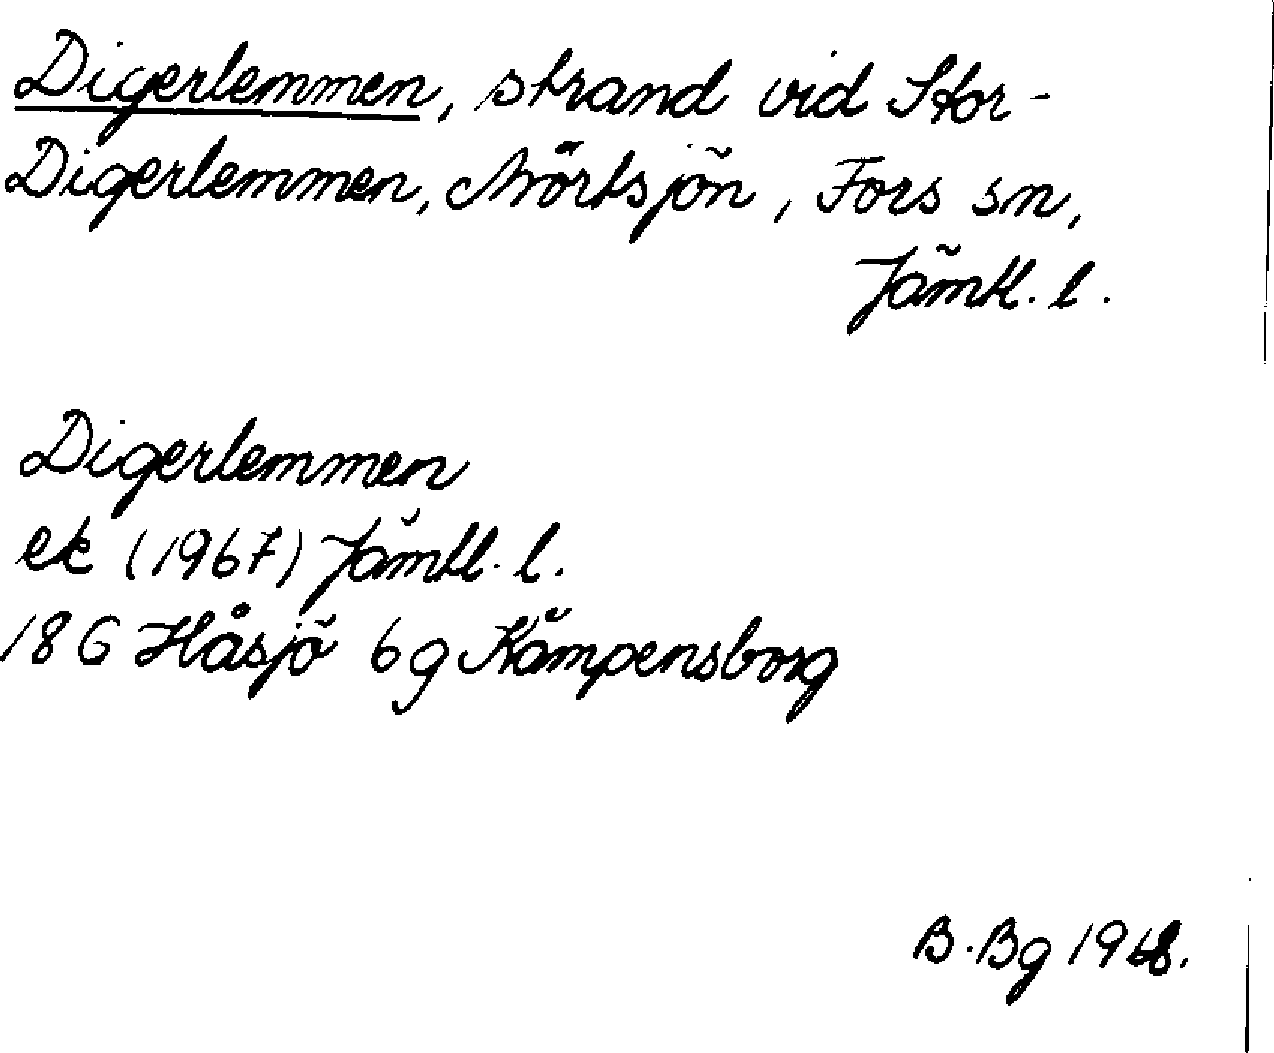 Digerlemmen, strand vid Stor-
Digerlemmen, Mörtsjön, Fors sn,
Jämtl. l.
Digerlemmen
ek (1967) Jämtl. l.
18G Håsjö 6g Kämpensborg
B. Bg 1968.